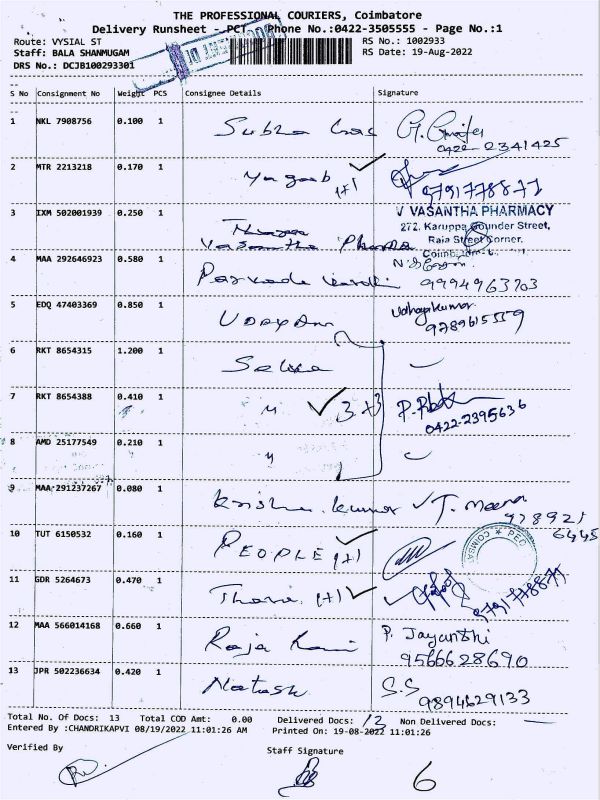 THE PROFESSIONAL COURIERS, Coimbatore
Delivery Runsheet - PCT - Phone No.:0422-3505555 - Page No.:1
Route: VYSIAL ST RS No.: 1002933
Staff: BALA SHANMUGAM RS Date: 19-Aug-2022
DRS No.: DCJB100293301
S No Consignment No Weight PCS Consignee Details Signature
1 NKL 7908756 0.100 1 Subha
0422-2341425
2 MTR 2213218 0.170 1 (+1
9791778877
3 IXM 502001939 0.250 1
Vasantha Pharma
V VASANTHA PHARMACY
272, Karuppa Gounder Street,
Raja Street Corner,
4 MAA 292646923 0.580 1 9994963703
5 EDQ 47403369 0.850 1 Udayam Udhayakumar
9789615559
6 RKT 8654315 1.200 1 Selva
7 RKT 8654388 0.410 1 3+3
0422-2395636
8 AMD 25177549 0.210 1
9 MAA 291237267 0.080 1 Krishna kumar T. Meena
978921
6445
10 TUT 6150532 0.160 1 PEOPLE (+1
11 GDR 5264673 0.470 1 (+1
9791778877
12 MAA 566014168 0.660 1 Raja P. Jayanthi
9566628690
13 JPR 502236634 0.420 1 S.S
9894629133
Total No. Of Docs: 13 Total COD Amt: 0.00 Delivered Docs: 13 Non Delivered Docs: —
Entered By :CHANDRIKAPVI 08/19/2022 11:01:26 AM Printed On: 19-08-2022 11:01:26
Verified By Staff Signature
6